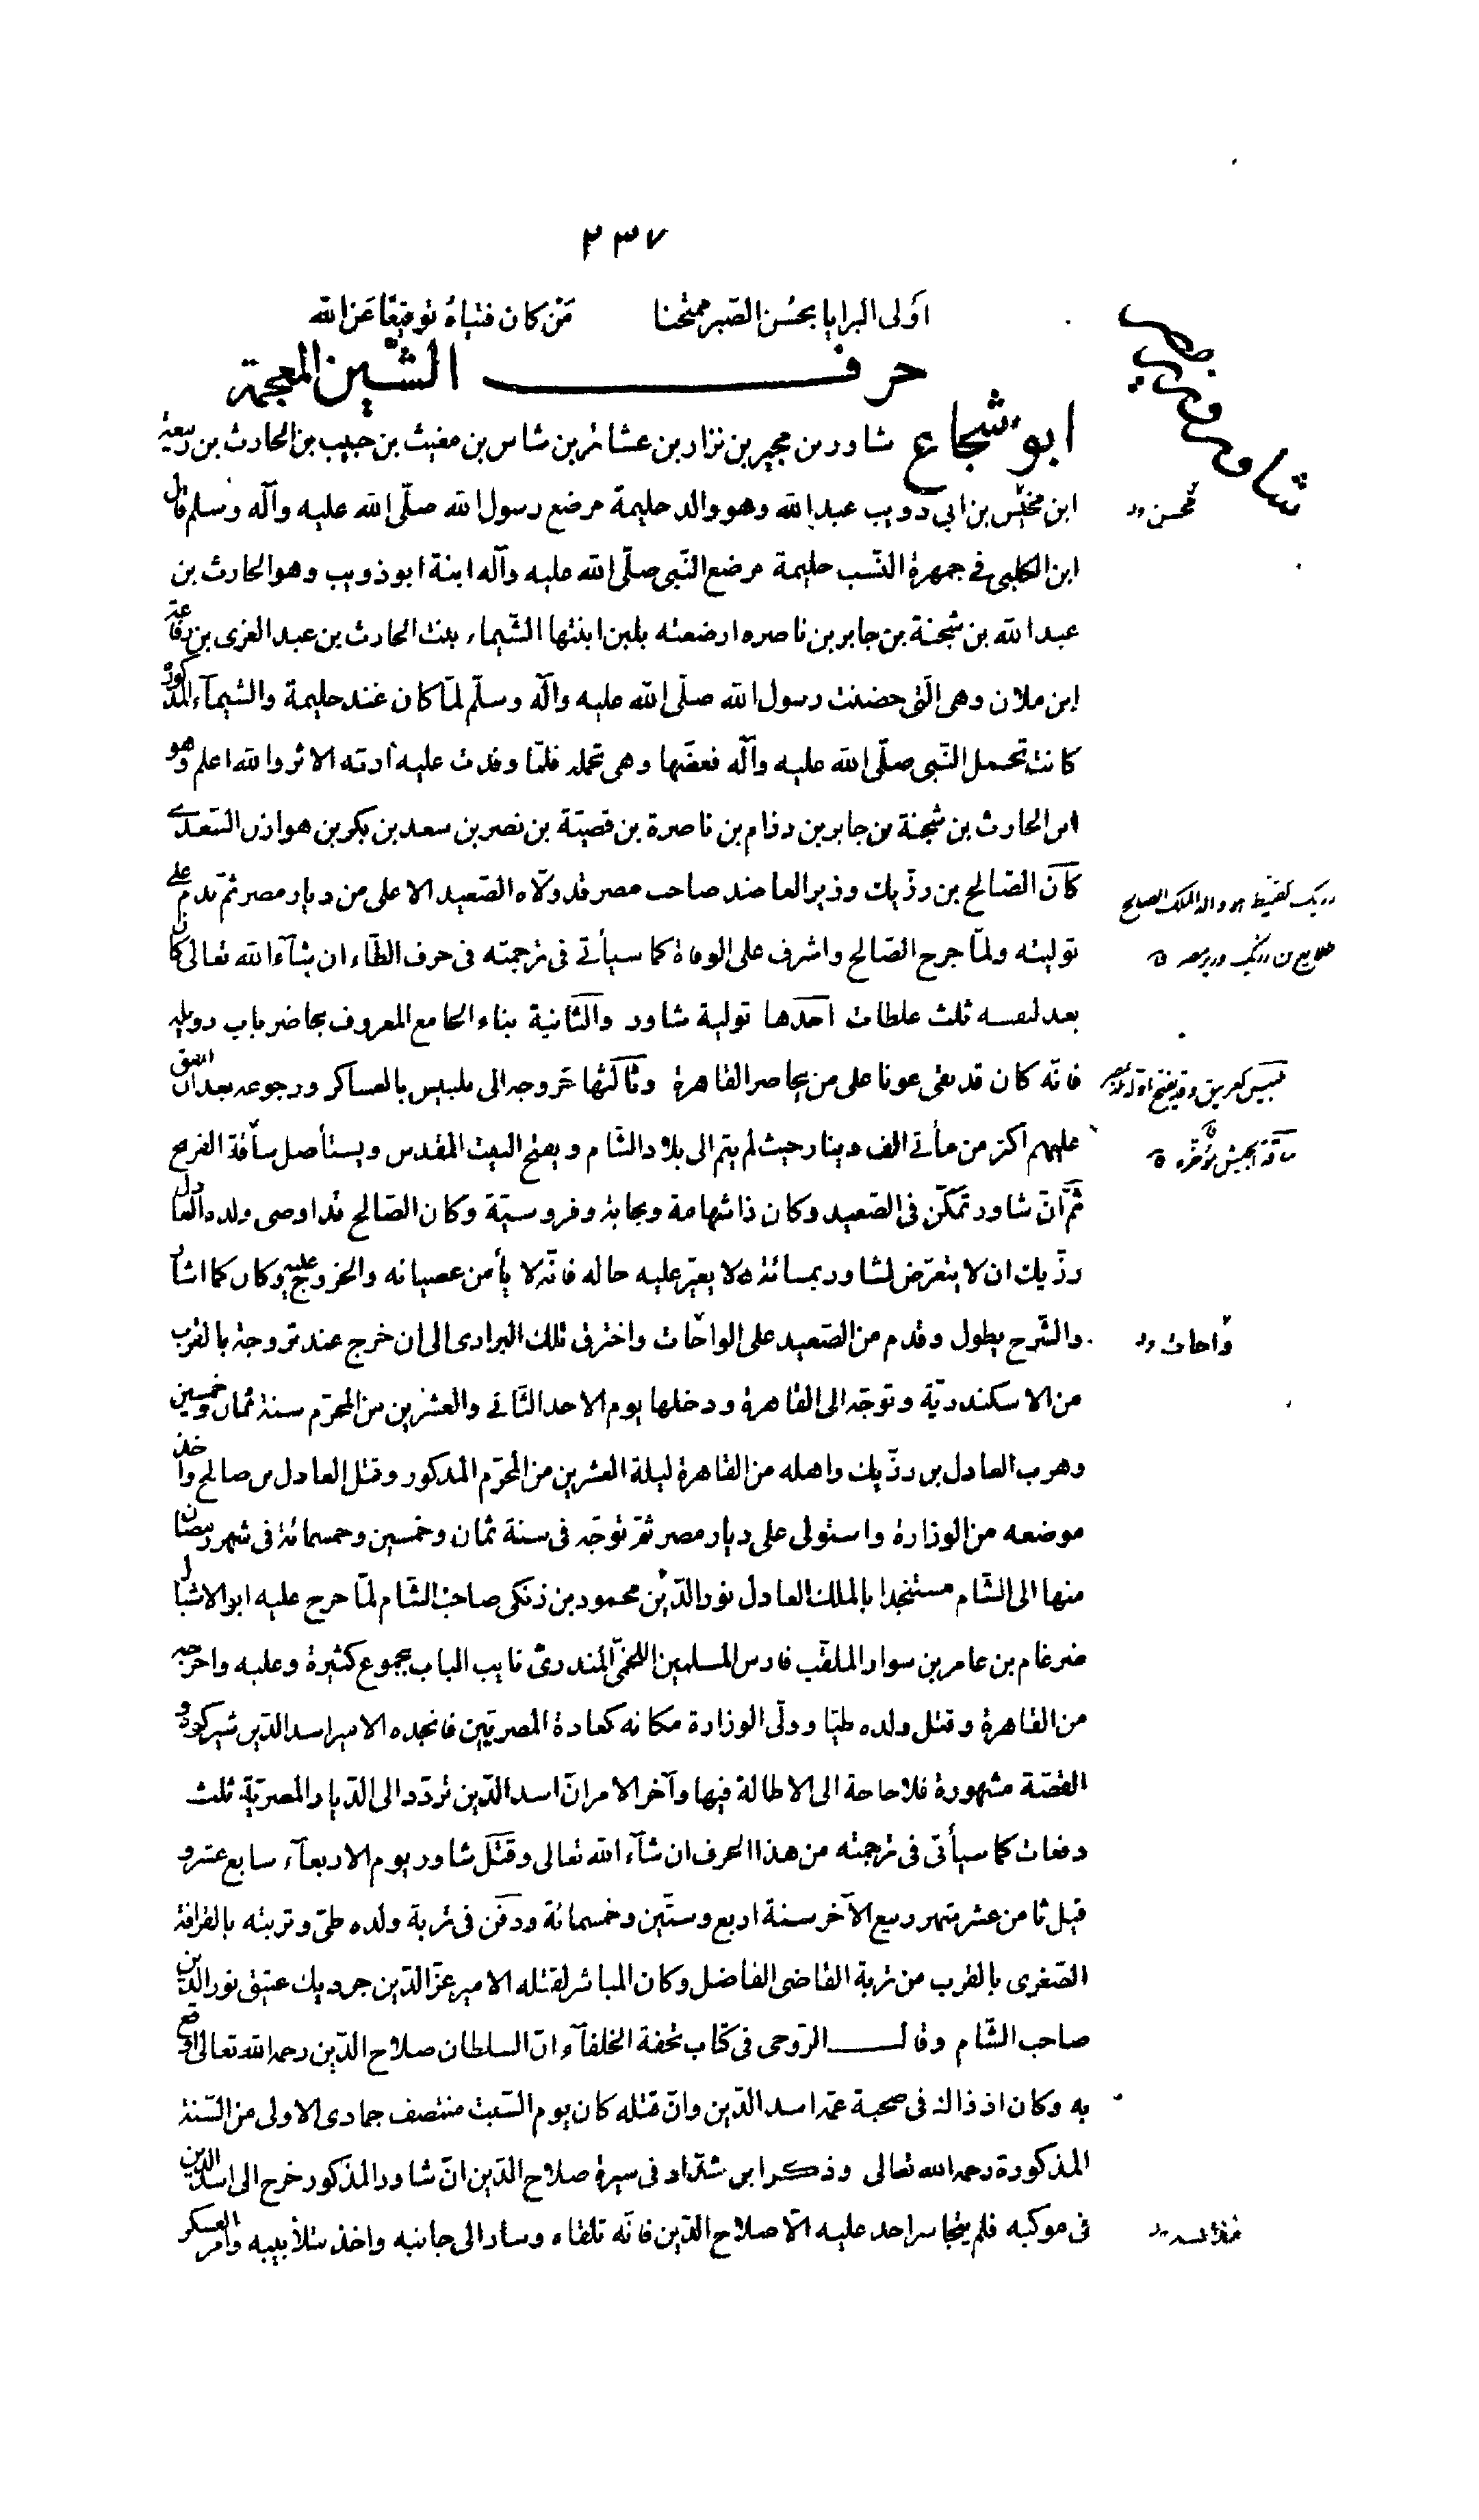 ٢٣٧
اولى البرايا بحسن الصبر ممتحنا من كان فتياه توقيعا عن الله
حرف الشين المعجمة
ابو شجاع شاور بن مجير بن نزار بن عشائر بن شاس بن مغيث بن حبيب بن الحارث بن ربيعة
ابن مخيس بن ابي ذويب عبد الله وهو والد حليمة مرضع رسول الله صلّى الله عليه وآله وسلم قال
ابن الكلبى فى جمهرة النّسب حليمة مرضع النّبى صلّى الله عليه وآله ابنة ابو ذويب وهو الحارث بن
عبد الله بن شجنة بن جابر بن ناصره ارضعته بلبن ابنتها الشّيماء بنت الحارث بن عبد العزى بن رفاعة
ابن ملان وهى الّتى حضنت رسول الله صلّى الله عليه وآله وسلّم لمّا كان عند حليمة والشيمآء المذكورة
كانت تحمل النّبى صلّى الله عليه وآله فعضّها وهى تحمله فلمّا وفدت عليه أرته الاثر والله اعلم وهو
ابن الحارث بن شجنة بن جابر بن رزام بن ناصرة بن قصيّة بن نصر بن سعد بن بكر بن هوازن السّعدى
كان الصّالح بن رزّيك وزير العاضد صاحب مصر قد ولّاه الصّعيد الاعلى من ديار مصر ثمّ ندم على
توليته ولمّا جرح الصّالح واشرف على الوفاة كما سيأتى فى ترجمته فى حرف الطّاء ان شآء الله تعالى كان
يعد لنفسه ثلث غلطات احدها تولية شاور والثانية بناء الجامع المعروف بجاضر باب زويله
فانّه كان قد بقى عونا على من يحاصر القاهرة وثالثها خروجه الى بلبيس بالعساكر ورجوعه بعد ان انفق
عليهم اكثر من مأتى الف دينار حيث لم يتم الى بلاد الشّام ويفتح البيت المقدس ويستأصل سآقة الفرنج
ثمّ انّ شاور تمكّن فى الصّعيد وكان ذا شهامة ونجابة وفروسيّة وكان الصّالح قد اوصى ولده العادل
رزّيك ان لا يتعرّض لشاور بمسائة ولا يغيّر عليه حاله فانّه لا يأمن عصيانه والخروج عليه وكان كما اشار
والشّرح يطول وقدم من الصّعيد على الواحات واخترق تلك البرارى الى ان خرج عند تروجة بالقرب
من الاسكندريّة وتوجّه الى القاهرة ودخلها يوم الاحد الثّانى والعشرين من المحرّم سنة ثمان وخمسين
وهرب العادل بن رزّيك واهله من القاهرة ليلة العشرين من المحرّم المذكور وقتل العادل بن صالح واخذ
موضعه من الوزارة واستولى على ديار مصر ثمّ توجّه فى سنة ثمان وخمسين وخمسمائة فى شهر رمضان
منها الى الشّام مستنجدا بالملك العادل نور الدّين محمود بن زنكى صاحب الشّام لمّا خرج عليه ابو الاشبال
ضرغام بن عامر بن سوار الملقّب فارس المسلمين اللخمىّ المنذرىّ نايب الباب بجموع كثيرة وغلبه واخرجه
من القاهرة وقتل ولده طيّا وولّى الوزارة مكانه كعادة المصريّين فانجده الامير اسد الدّين شيركوه و
القصّة مشهورة فلا حاجة الى الاطالة فيها وآخر الامر انّ اسد الدّين تردّد الى الدّيار المصريّة ثلث
دفعات كما سيأتى فى ترجمته من هذا الحرف ان شآء الله تعالى وقتل شاور يوم الاربعآء سابع عشر و
قيل ثامن عشر شهر ربيع الآخر سنة اربع وستّين وخمسمائة ودفن فى تربة ولده طىّ وتربته بالقرافة
الصّغرى بالقرب من تربة القاضى الفاضل وكان المباشر لقتله الامير عزّ الدّين جرديك عتيق نور الدّين
صاحب الشّام وقال الرّوحى فى كتاب تحفة الخلفآء انّ السلطان صلاح الدّين رحمه الله تعالى اوقع
به وكان اذ ذاك فى صحبة عمّه اسد الدّين وانّ قتله كان يوم السّبت منتصف جمادى الاولى من السّنة
المذكورة رحمه الله تعالى وذكر ابن شدّاد فى سيرة صلاح الدّين انّ شاور المذكور خرج الى اسد الدين
فى موكبه فلم يتجاسر احد عليه الّا صلاح الدّين فانّه تلقاه وسار الى جانبه واخذ بتلابيبه وامر العسكر
شاور وزير مصر
محسن
رزيك كقبيط هو والد الملك الصالح
طلايع بن رزيك وزير مصر
بلبيس كغرنيق وقد يفتح اوله بلد بمصر
ساقة الجيش مؤخره
واحات